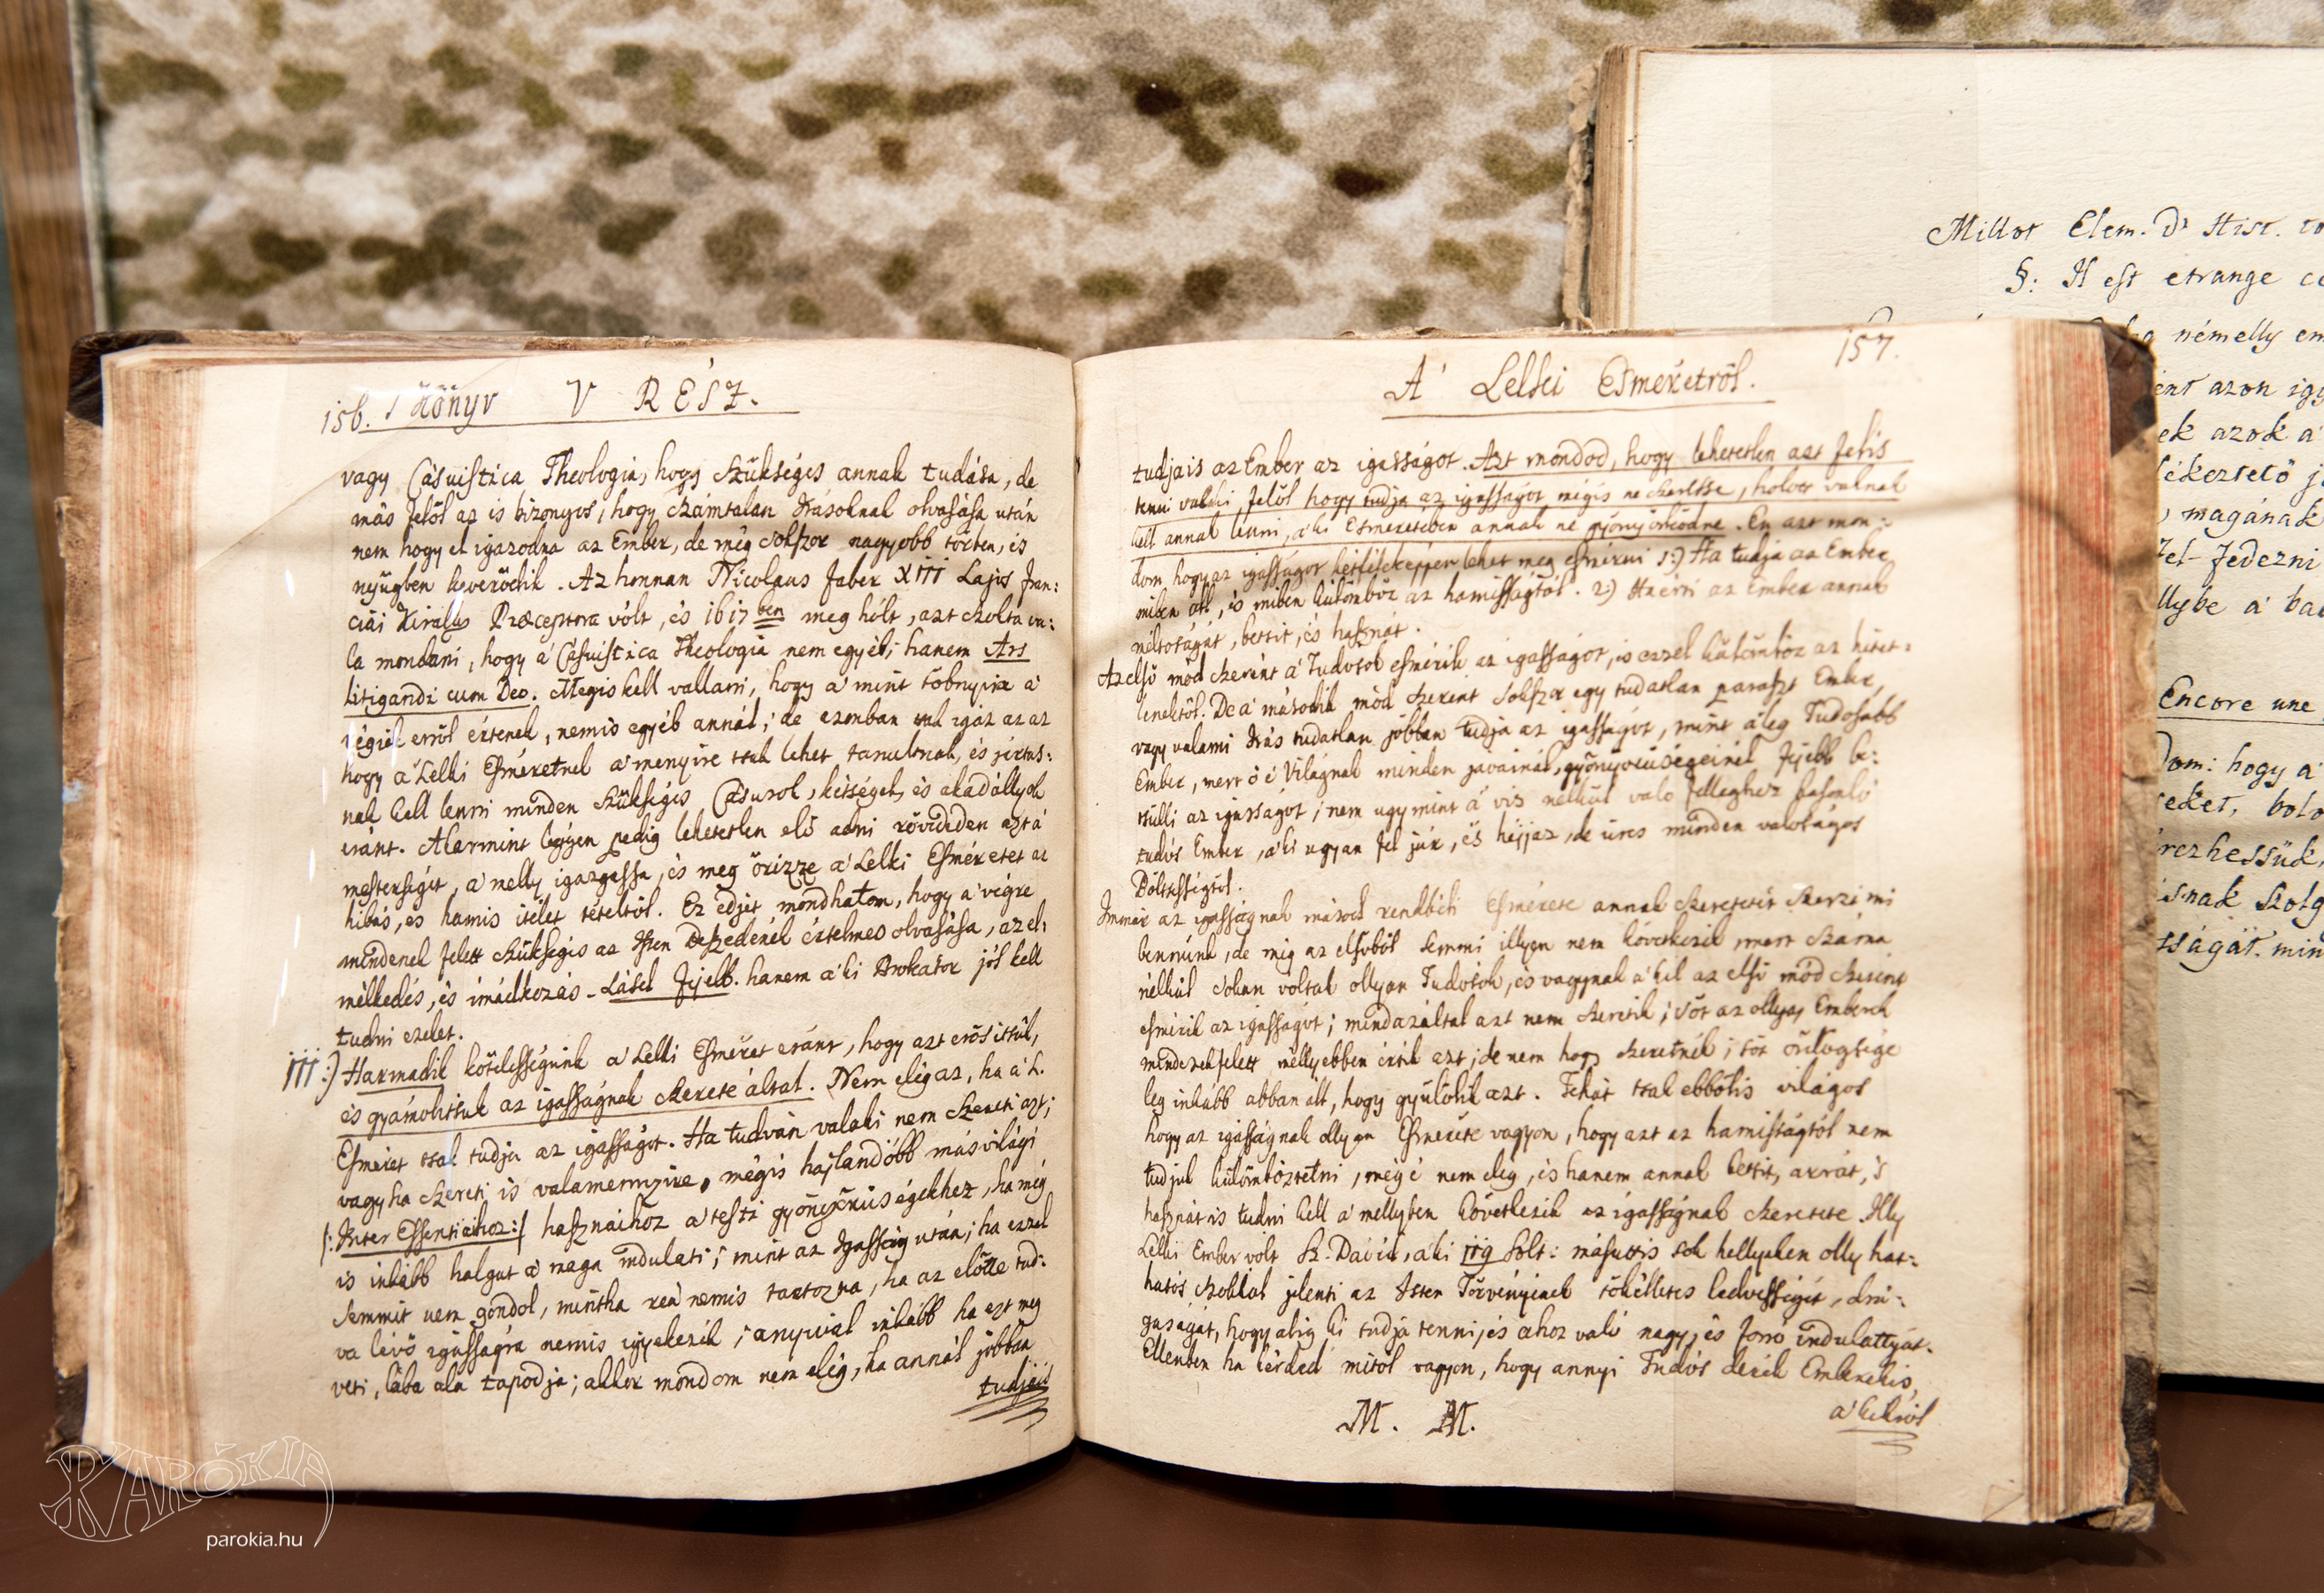 156. I Könyv V RÉSZ.
vagy Casuistica Theologia, hogy szükséges annak tudása, de
más felöl az is bizonyos, hogy számtalan Irásoknak olvasása után
nem hogy el igazodna az Ember, de még sokszor nagyobb törben, és
nyügben keverödik. Az honnan Nicolaus Faber XIII Lajos Fran:
ciai Király Præceptora vólt, és 1617ben meg hólt, azt szolta va:
la mondani, hogy a' Casuistica Theologia nem egyéb, hanem Ars
litigandi cum Deo. Mégis kell vallani, hogy a' mint töbnyire a'
régiek erröl értenek, nemis egyéb annál; de azomban tsak igaz az az
hogy a' Lelki Esméretnek a' menyire tsak lehet tanultnak, és jártas:
nak kell lenni minden szükséges Casusok, kétségek, és akadállyok
eránt. Akarmint légyen pedig lehetetlen elö adni rövideden azt a'
mesterséget, a' melly igazgassa, és meg örizze a' Lelki Esméretet a'
hibás, es hamis itélet tételtöl. Ez edjet mondhatom, hogy a' végre
mindenek felett szükséges az Isten Beszedének értelmes olvasása, az el:
mélkedés, és imádkozás. Lásd Fijebb. hanem a' ki Prokator jól kell
tudni ezeket.
III:) Harmadik kötelességünk a' Lelki Esméret eránt, hogy azt erösittsük,
és gyámolittsuk az igasságnak szerete által. Nem elég az, ha a' L.
Esméret tsak tudja az igasságot. Ha tudván valaki nem szereti azt;
vagy ha szereti is valamennyire, mégis hajlandóbb más világi
/: Inter Essentiáihoz:/ hasznaihoz a' testi gyönyörüségekhez, ha még
is inkább halgat a' maga indulati; mint az Igasság után; ha ezzel
semmit nem gondol, mintha reá nemis tartozna, ha az elötte tud:
va lévö igasságra nemis igyekezik; anyival inkább ha ezt meg
veti, lába alá tapodja; akkor mondom nem elég, ha annál jobban
tudjais
A' Lelki Esméretröl. 157.
tudjais az Ember az igasságot. Azt mondod, hogy lehetetlen azt felis
tenni valaki felöl hogy tudja az igasságot mégis ne szeresse, holott
kell annak lenni, a' ki Esméretében annak ne gyönyörködne. En azt mon:
dom, hogy az igasságot kétféleképpen lehet meg esmérni 1:) Ha tudja az Ember
miben áll, és miben külömböz az hamisságtól. 2:) Ha érzi az Ember annak
méltóságát, bettsit, és hasznát.
Az elsö mód szerént a' Tudósok esmérik az igasságot, és ezzel külömböz az hitet:
lenektöl. De a' második mód szerent sokszor egy tudatlan paraszt Ember,
vagy valami Irás tudatlan jobban tudja az igasságot, mint a' leg Tudosabb
Ember, mert ö é Világnak minden javainál, gyönyörüségeinél fijebb be:
tsülli az igasságot; nem ugy mint a' viz nélkül való felleghez hasonló
tudós Ember, a' ki ugyan fel jár, és héjjaz, de üres minden valóságos
Böltsességtöl.
Immár az igasságnak másod rendbéli Esmérete annak szeretetit szerzi mi
bennünk, de mig az elsöböl semmi illyen nem következik, mert száma
nélkül sokan voltak ollyan Tudósok, és vagynak a' kik az elsö mód szerint
esmérik az igasságot; mindazáltal azt nem szeretik; söt az ollyan Emberek
mindezekfelett méllyebben értik azt; de nem hogy szeretnék; söt
leg inkább abban áll, hogy gyülölik azt. Tehát tsak ebbölis világos
hogy az igasságnak ollyan Esmérete vagyon, hogy azt az hamisságtól nem
tudjuk külömböztetni, még é nem elég, és hanem annak bettsit, arrát, 's
hasznát is tudni kell a' mellyben következik az igasságnak szeretete. Illy
Lelki Ember volt Sz. Dávid, a' ki 119 Solt: másuttis sok hellyeken olly hat:
hatós szokkal jelenti az Isten Törvényinek tökélletes kedvességét, drá:
gaságát, hogy alig ki tudja tenni, és ahoz való nagy, és forró indulattyát.
Ellenben ha kérded mitöl vagyon, hogy annyi Tudós derék Emberekis,
M. M. a' kikröl
Millot Elem. D' Hist.
§: Il est etrange
némelly
azon
azok a'
magának
fedezni
Encore une
hogy a'
minden
parokia.hu